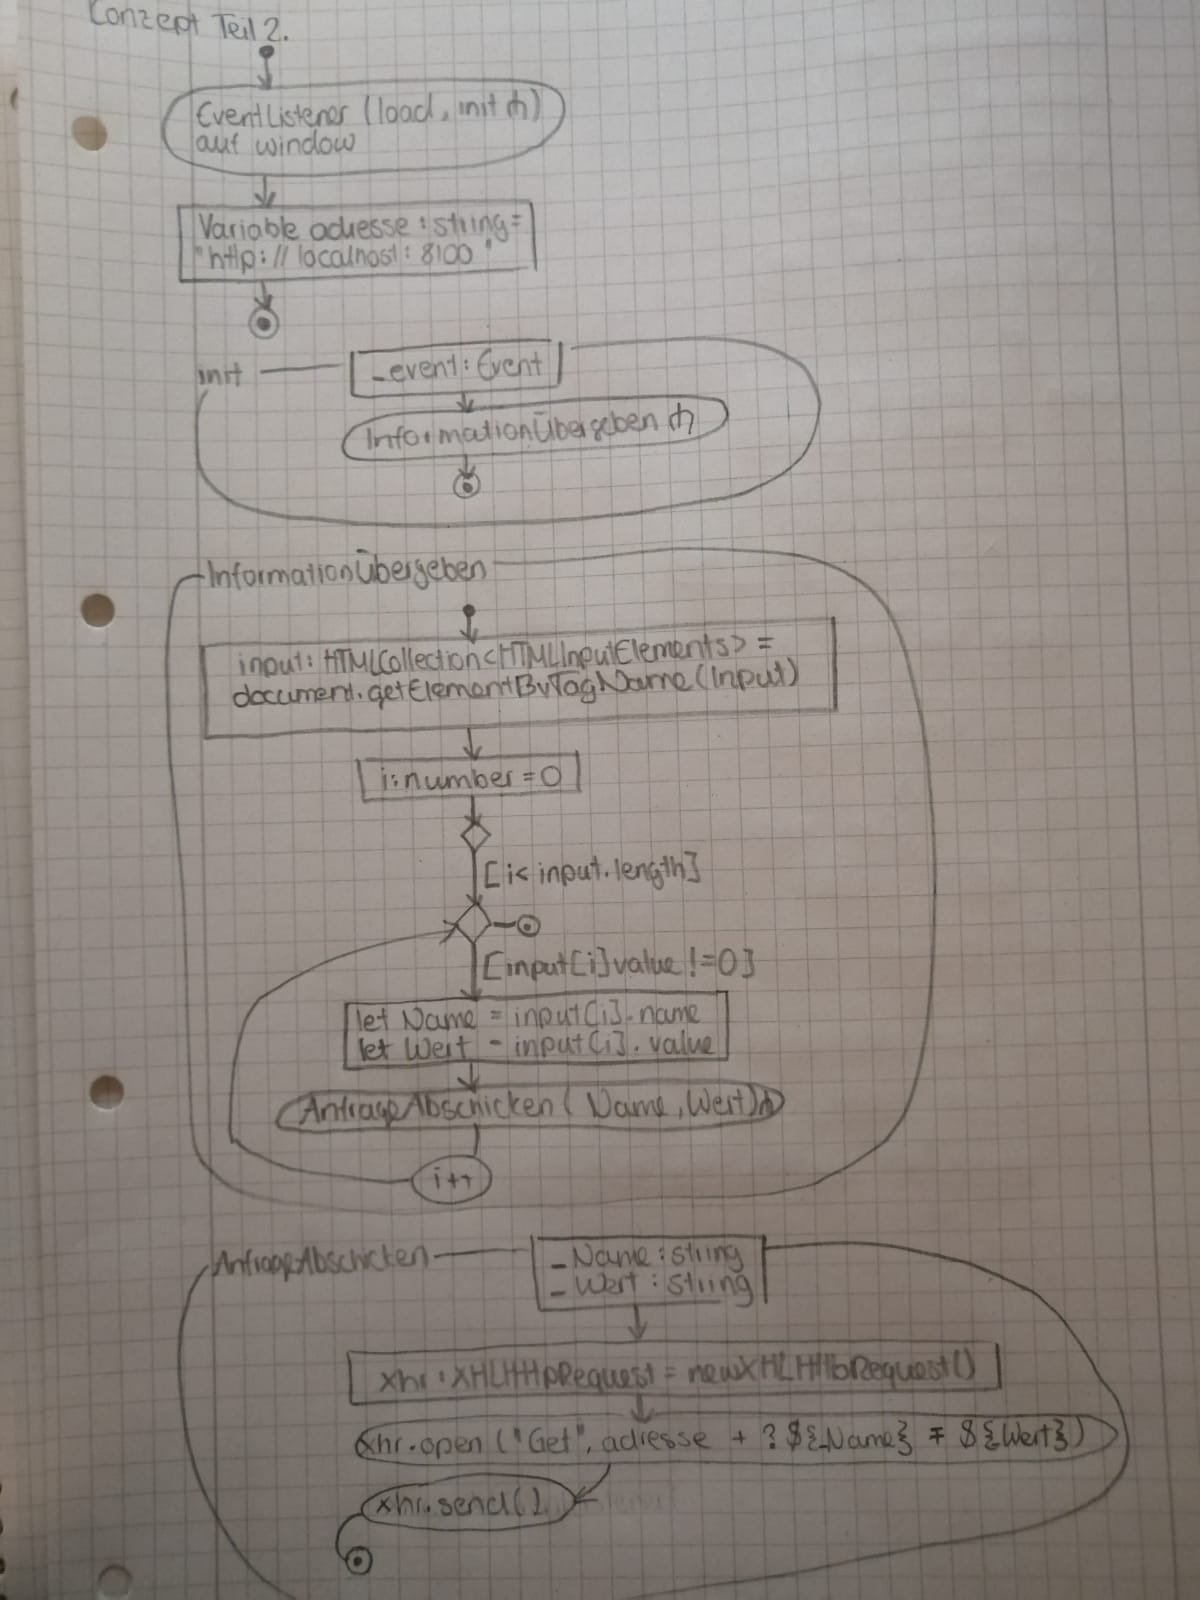 Konzept Teil 2.
EventListener (load, init ⋔)
auf window
Variable adresse : string =
"http://localhost: 8100"
init
_event: Event
InformationÜbergeben ⋔
InformationÜbergeben
input: HTMLCollection<HTMLInputElements> =
document.getElementByTagName(Input)
i:number = 0
[i< input.length]
[input[i]value !=0]
let Name = input[i].name
let Wert = input[i].value
AnfrageAbschicken ( Name, Wert) ⋔
i++
AnfrageAbschicken
_Name : string
_Wert : string
xhr : XHLHttpRequest = new XHLHttpRequest()
xhr.open ("Get", adresse + ? ${_Name} = ${Wert})
xhr.send()